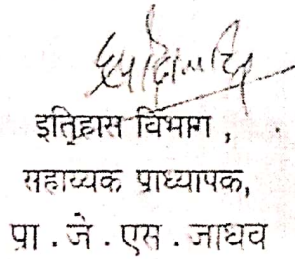 इतिहास विभाग ,
सहाय्यक प्राध्यापक,
प्रा . जे . एस . जाधव